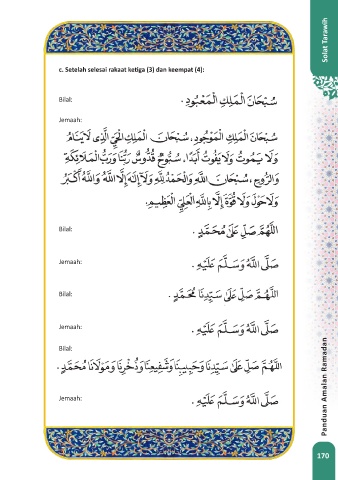 Solat Tarawih
c. Setelah selesai rakaat ketiga (3) dan keempat (4):
Bilal:
سُبْحَانَ الْمَلِكِ الْمَعْبُودِ.
Jemaah:
سُبْحَانَ الْمَلِكِ الْمَوْجُودِ، سُبْحَانَ الْمَلِكِ الْحَيِّ الَّذِي لَا يَنَامُ
وَلَا يَمُوتُ وَلَا يَفُوتُ أَبَدًا، سُبُّوحٌ قُدُّوسٌ رَبُّنَا وَرَبُّ الْمَلَائِكَةِ
وَالرُّوحِ، سُبْحَانَ اللَّهِ وَالْحَمْدُ لِلَّهِ وَلَا إِلَهَ إِلَّا اللَّهُ وَاللَّهُ أَكْبَرُ
وَلَا حَوْلَ وَلَا قُوَّةَ إِلَّا بِاللَّهِ الْعَلِيِّ الْعَظِيمِ.
Bilal:
اللَّهُمَّ صَلِّ عَلَى مُحَمَّدٍ.
Jemaah:
صَلَّى اللَّهُ وَسَلَّمَ عَلَيْهِ.
Bilal:
اللَّهُمَّ صَلِّ عَلَى سَيِّدِنَا مُحَمَّدٍ.
Jemaah:
صَلَّى اللَّهُ وَسَلَّمَ عَلَيْهِ.
Bilal:
اللَّهُمَّ صَلِّ عَلَى سَيِّدِنَا وَحَبِيبِنَا وَشَفِيعِنَا وَذُخْرِنَا وَمَوْلَانَا مُحَمَّدٍ.
Jemaah:
صَلَّى اللَّهُ وَسَلَّمَ عَلَيْهِ.
Panduan Amalan Ramadan
170